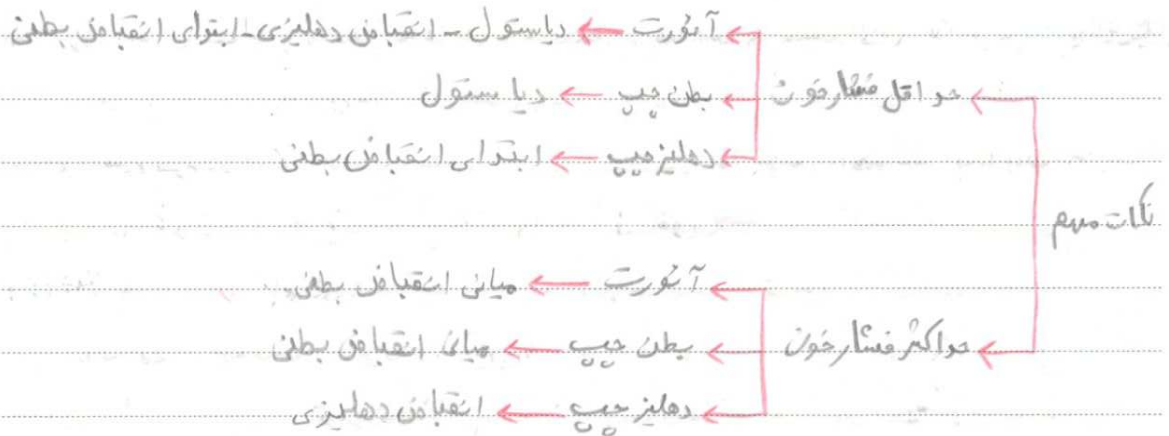 نکات مهم
حداقل فشار خون
آئورت ← دیاستول - انقباض دهلیزی - ابتدای انقباض بطنی
بطن چپ ← دیاستول
دهلیز چپ ← ابتدای انقباض بطنی
حداکثر فشار خون
آئورت ← میانی انقباض بطنی
بطن چپ ← میانی انقباض بطنی
دهلیز چپ ← انقباض دهلیزی